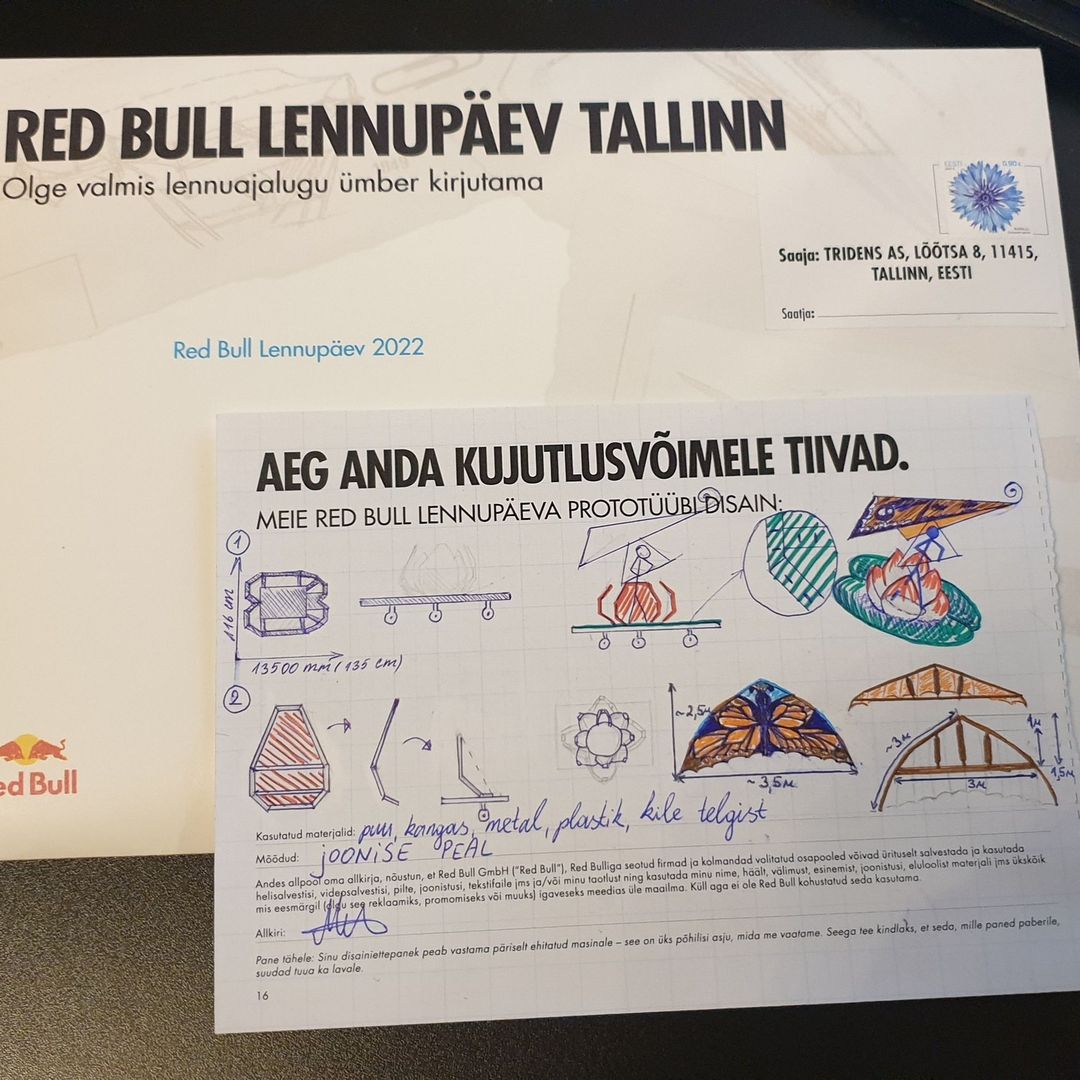 RED BULL LENNUPÄEV TALLINN
Olge valmis lennuajalugu ümber kirjutama
EESTI 0.90€
Saaja: TRIDENS AS, LÕÕTSA 8, 11415,
TALLINN, EESTI
Saatja:
Red Bull Lennupäev 2022
ed Bull
AEG ANDA KUJUTLUSVÕIMELE TIIVAD.
MEIE RED BULL LENNUPÄEVA PROTOTÜÜBI DISAIN:
1
116 cm
13500 mm (135 cm)
2
~2,5м
~3,5м
~3м
1м
1,5м
3м
Kasutatud materjalid: puu, kangas, metal, plastik, kile telgist
Mõõdud: JOONISE PEAL
Andes allpool oma allkirja, nõustun, et Red Bull GmbH ("Red Bull"), Red Bulliga seotud firmad ja kolmandad valitatud osapooled võivad ürituselt salvestada ja kasutada
helisalvestisi, videosalvestisi, pilte, joonistusi, tekstifaile jms ja/või minu taotlust ning kasutada minu nime, häält, välimust, esinemist, joonistusi, eluloolist materjali jms ükskõik
mis eesmärgil (olgu see reklaamiks, promomiseks või muuks) igaveseks meedias üle maailma. Küll aga ei ole Red Bull kohustatud seda kasutama.
Allkiri:
Pane tähele: Sinu disainiettepanek peab vastama päriselt ehitatud masinale – see on üks põhilisi asju, mida me vaatame. Seega tee kindlaks, et seda, mille paned paberile,
suudad tuua ka lavale.
16